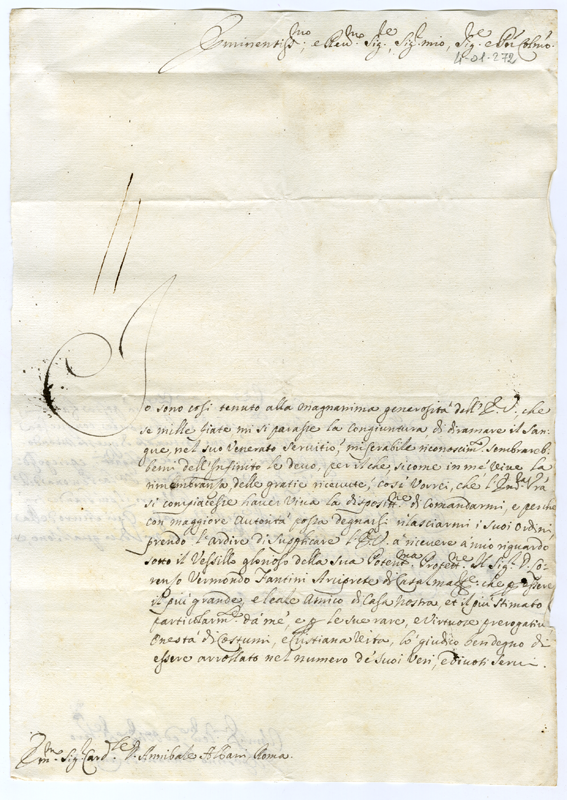 Eminentiss.mo, e Reu.mo Sig.re, Sig.r mio, Sig.re e Pron Colmo.
4-01-272
Io sono cosi tenuto alla magnanima generosità dell'E.V. che
se mille fiate mi si parasse la congiuntura di diramare il San-
gue, nel suo Venerato seruitio, miserabile riconoscim.to sembrareb-
bemi dell'Infinito le deuo, per il che sicome in mé viue la
rimembranza delle gratie riceuute, cosi Vorrei, che l'Em.za V.ra
si compiacesse hauer viua la disposit.ne di Comandarmi, e perche
con maggiore Autorità possa degnarsi rilasciarmi i suoi Ordini,
prendo l'ardire di Supplicare l'E.V. a riceuere a mio riguardo
sotto il Vessillo glorioso della sua Potent.ma Protett.ne Il Sig.r D. Lo-
renso Vermondo Fantini Arciprete di Casalmagg.re che p essere
il più grande, e leale Amico di Casa Nostra, et il più stimato
particolarm.te da mé, e p le sue rare, e Virtuose prerogatiue
Onestà di Costumi, e Cristiana Vita, lo giudico ben degno di
essere arrollato nel numero de suoi Veri, e diuoti Serui.
Em.mo Sig.r Card.le D. Annibale Albani Roma.